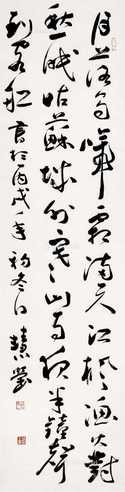 月落烏啼霜滿天江楓漁火對
愁眠姑蘇城外寒山寺夜半鐘聲
到客船 書於丙戌年初冬日 慧瑩